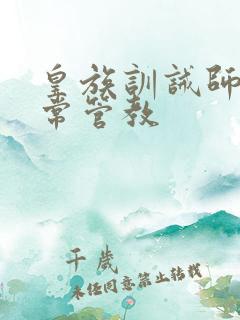 皇族訓誡師
常管教
千歲
未经同意禁止转载